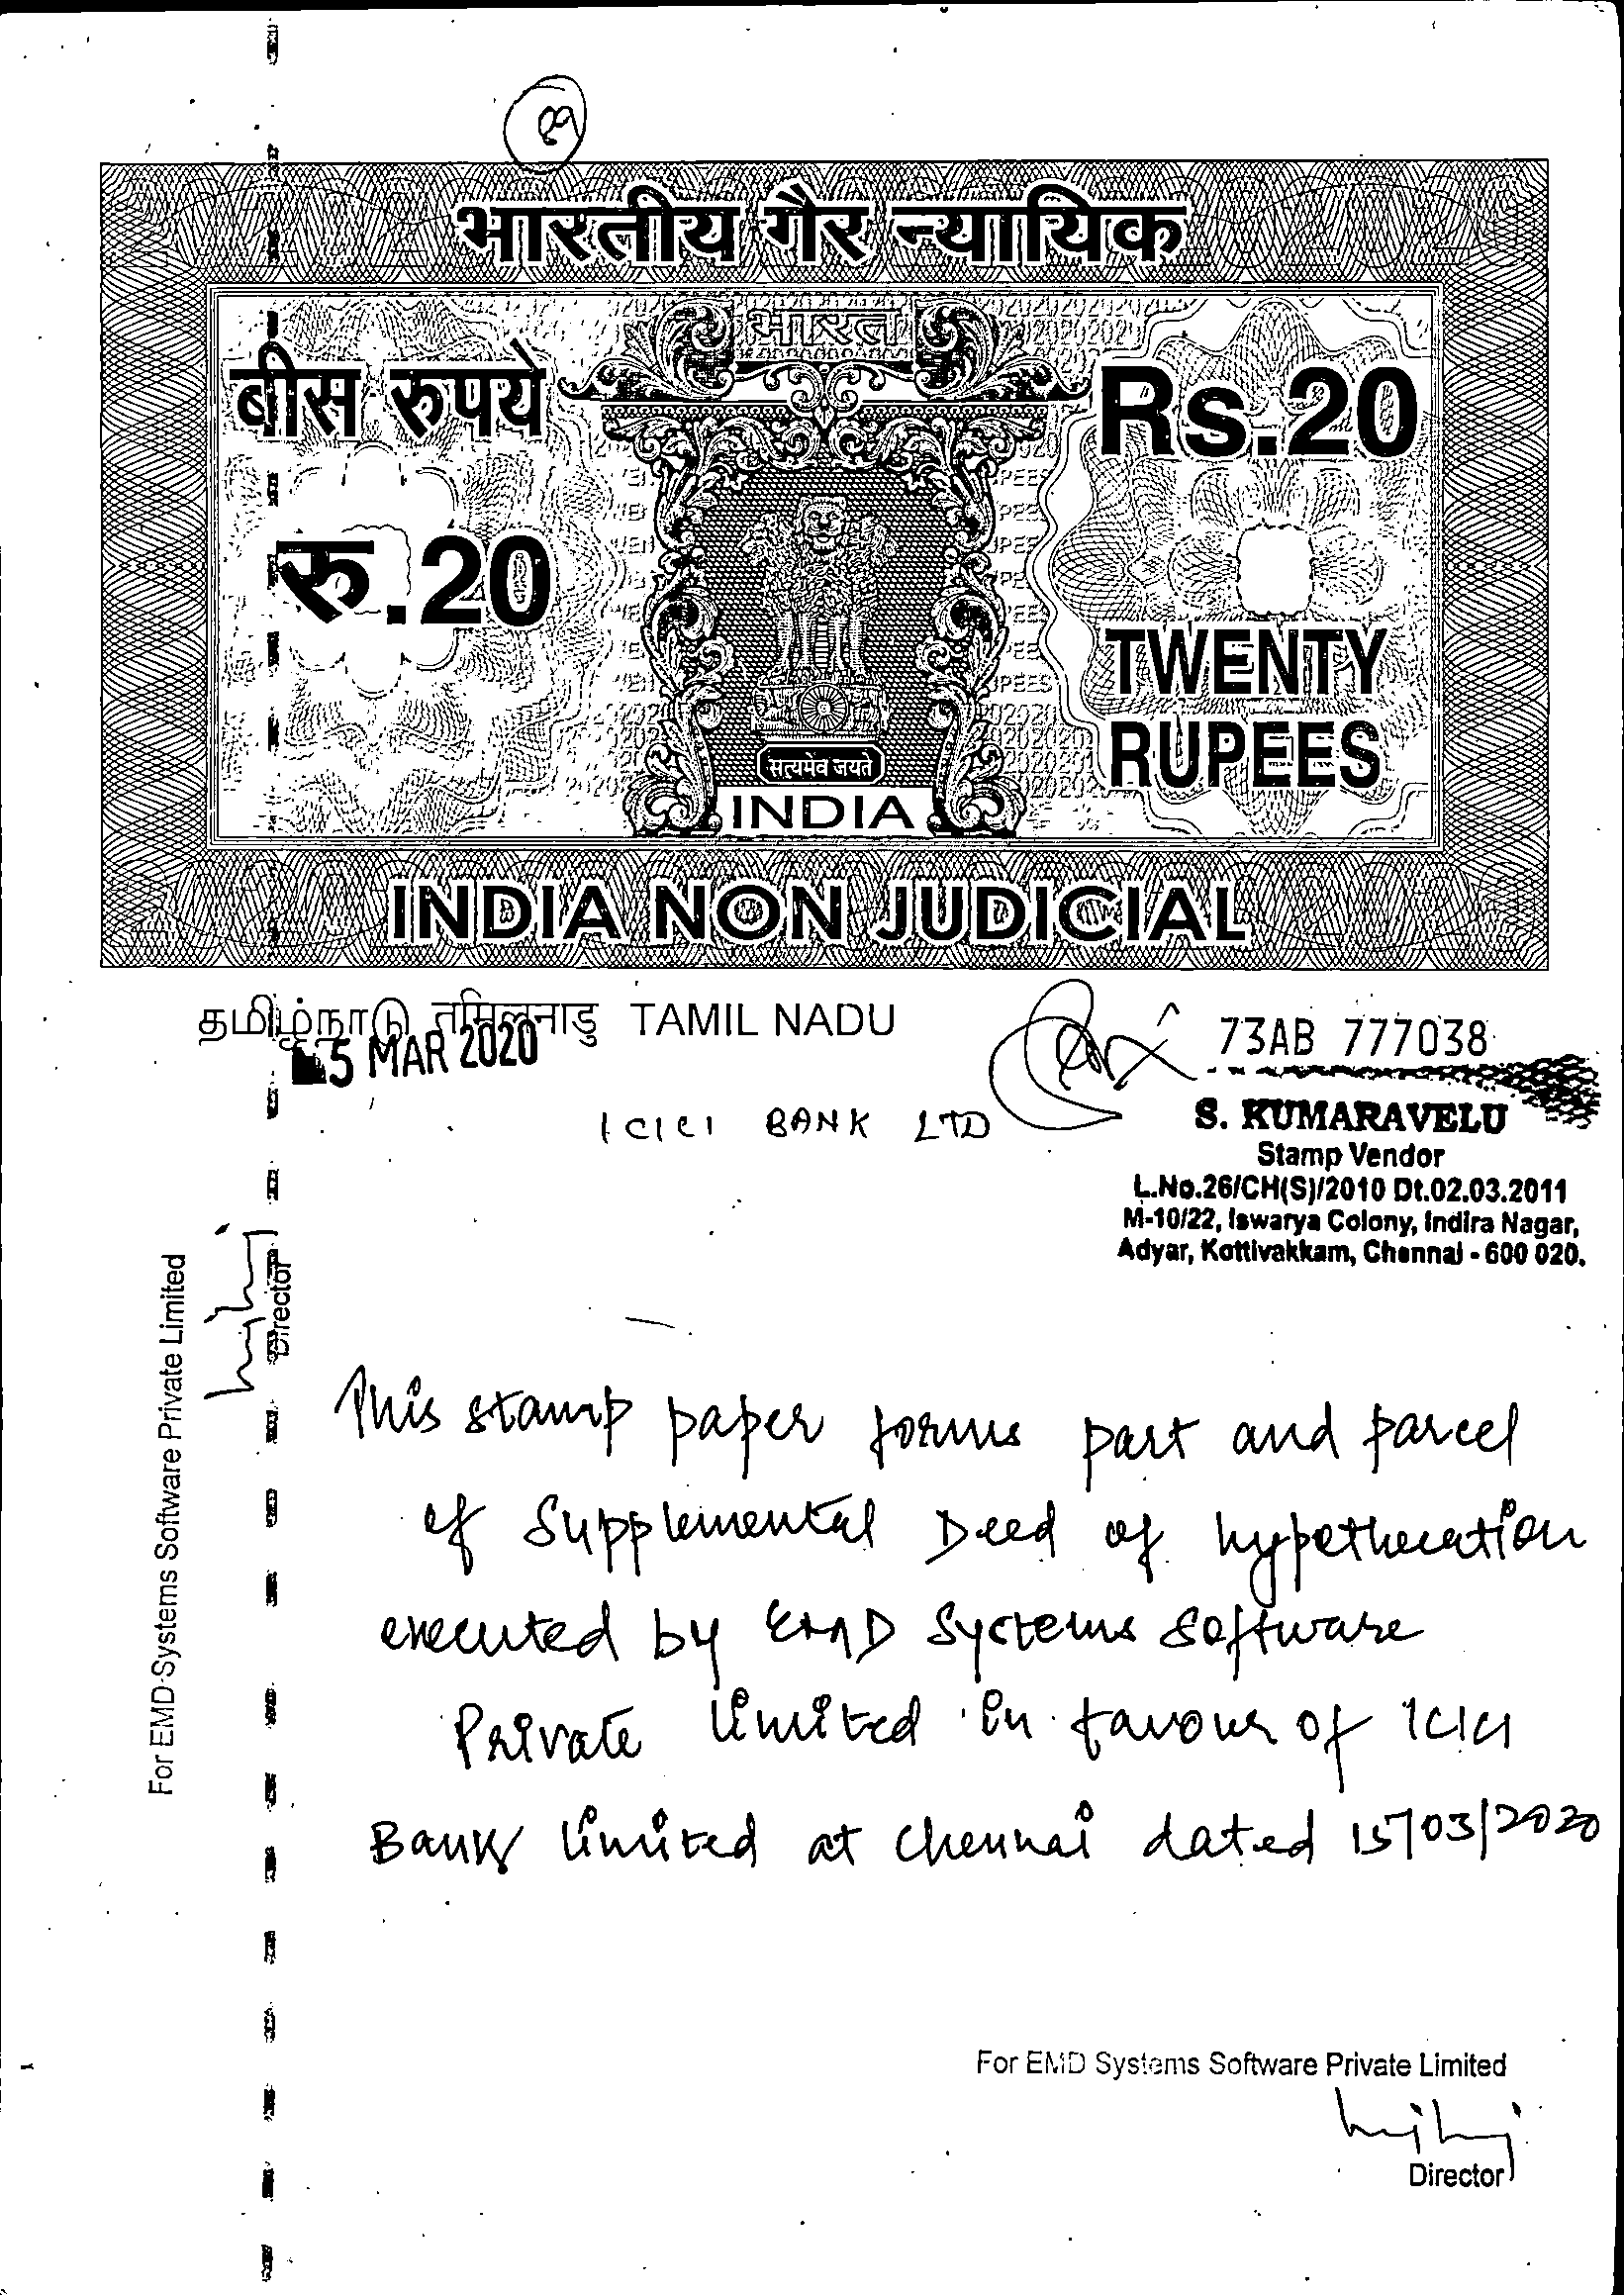 भारतीय गैर न्यायिक
भारत
बीस रुपये
Rs.20
रु.20
TWENTY
RUPEES
सत्यमेव जयते
INDIA
INDIA NON JUDICIAL
தமிழ்நாடு तमिलनाडु TAMIL NADU
73AB 777038
5 MAR 2020
ICICI BANK LTD
S. KUMARAVELU
Stamp Vendor
L.No.26/CH(S)/2010 Dt.02.03.2011
M-10/22, Iswarya Colony, Indira Nagar,
Adyar, Kottivakkam, Chennai - 600 020.
For EMD Systems Software Private Limited
Director
This stamp paper forms part and parcel
of Supplemental Deed of hypothecation
executed by EMD Systems Software
Private limited in favour of ICICI
Bank limited at Chennai dated 15/03/2020
For EMD Systems Software Private Limited
Director